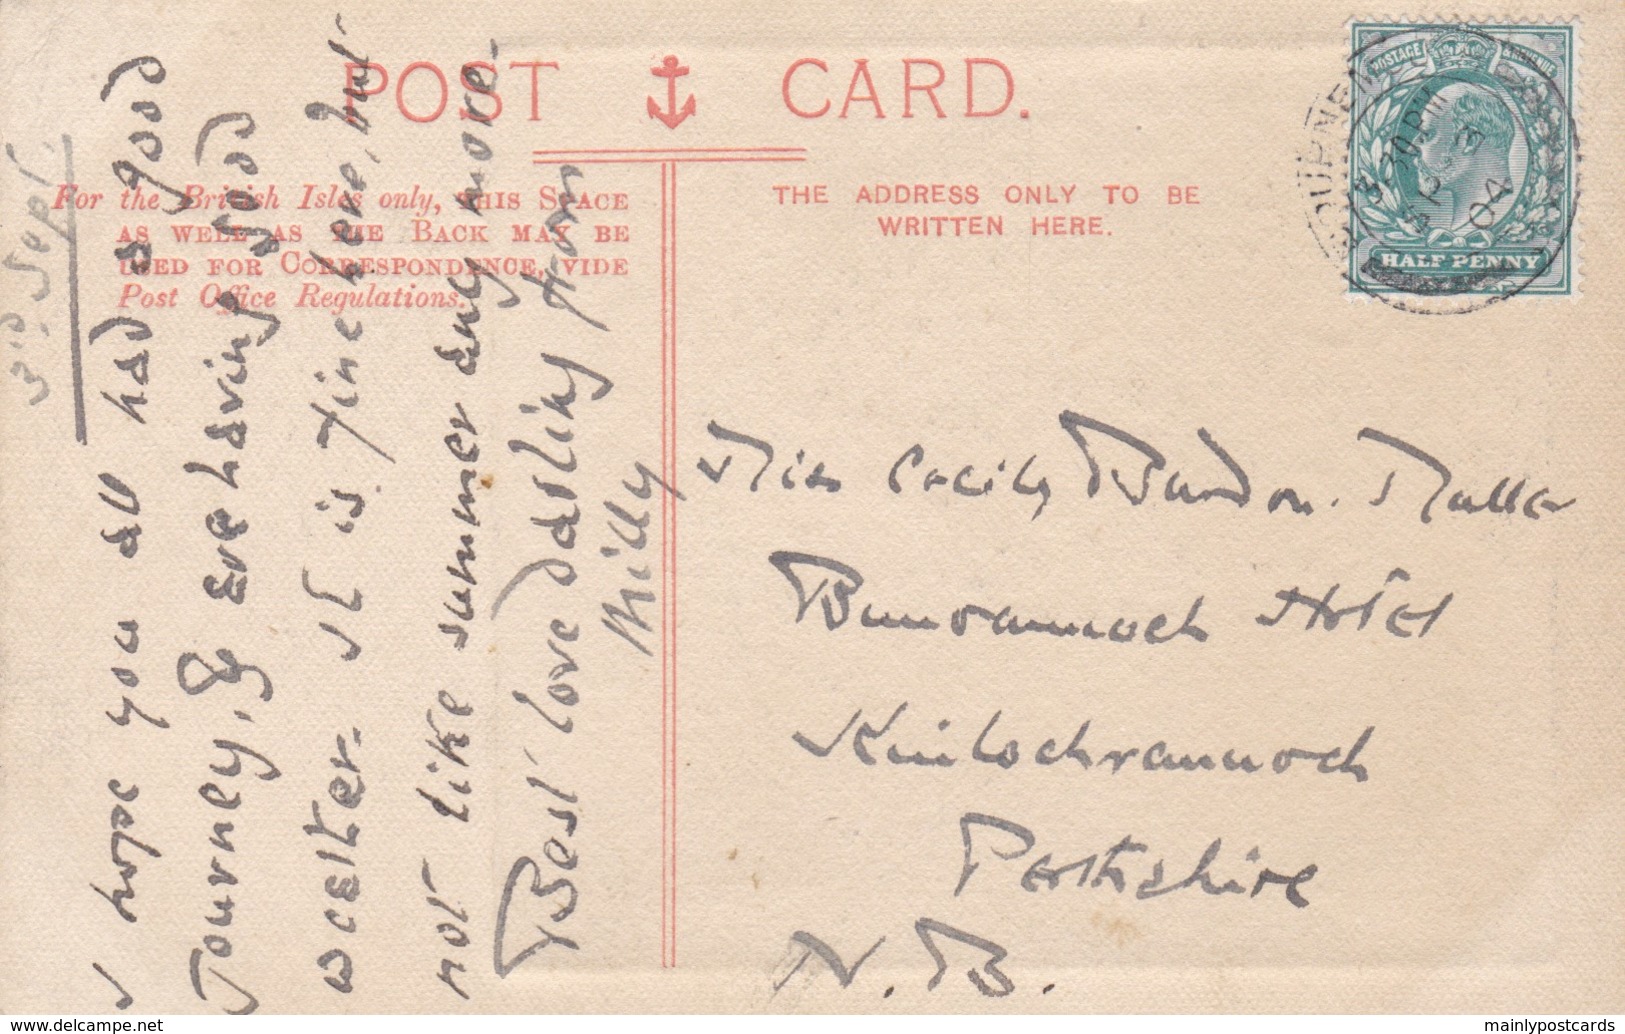 POST CARD.
For the British Isles only, THIS SPACE
AS WELL AS THE BACK MAY BE
USED FOR CORRESPONDENCE, VIDE
Post Office Regulations.
THE ADDRESS ONLY TO BE
WRITTEN HERE.
POSTAGE & REVENUE
HALF PENNY
3 30 PM
SP 3
04
3rd Sept.
I hope you all had a good
Journey, & are having good
weather. It is fine here, but
not like summer any more.
Best love darling from
Milly
Miss Cecily Muller
Bunrannoch Hotel
Kinlochrannoch
Perthshire
N.B.
mainlypostcards
www.delcampe.net